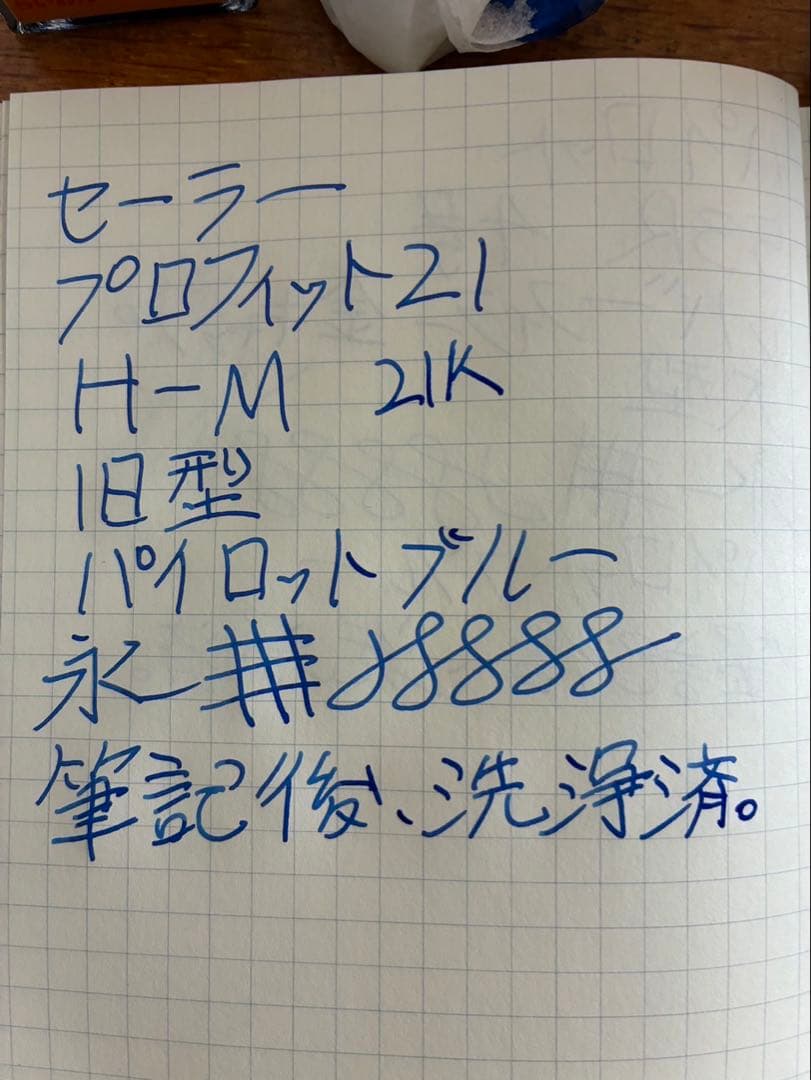 セーラー
プロフィット21
H-M 21K
旧型
パイロットブルー
永
筆記後、洗浄済。